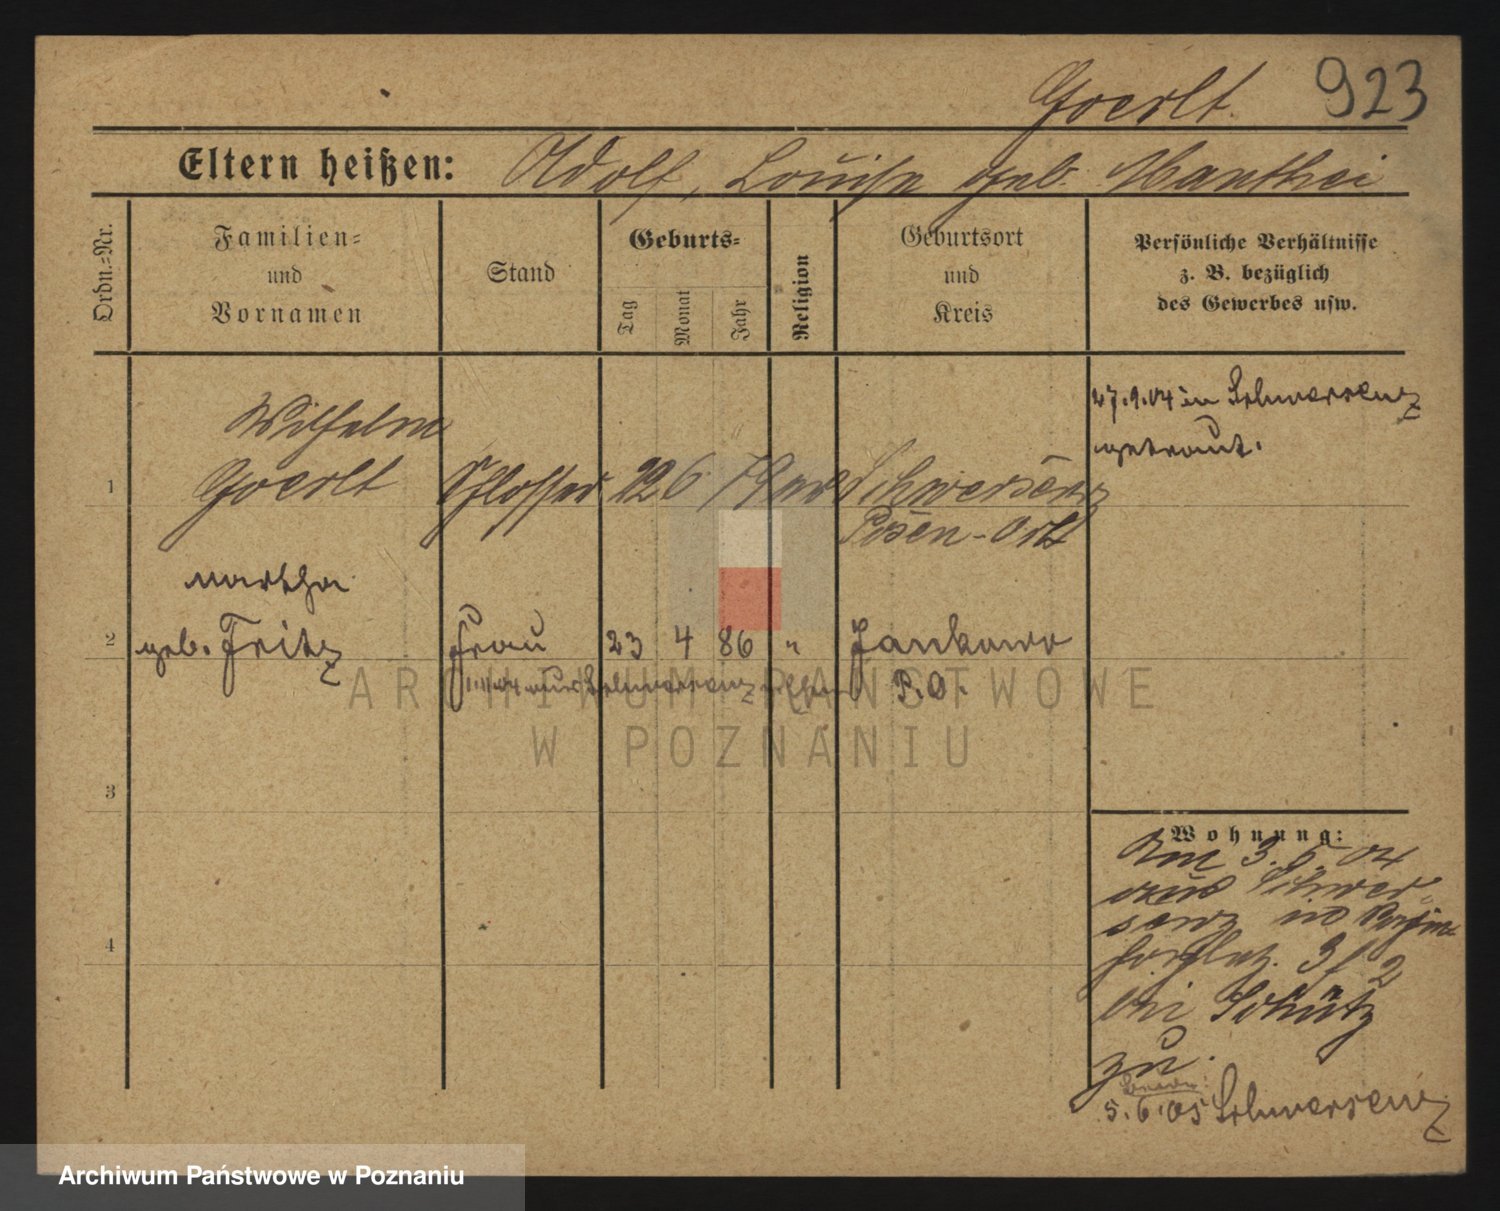 923
Goerlt.
Eltern heißen: Adolf, Louise geb. Manthei
Ordn.-Nr.
Familien- und Vornamen
Stand
Geburts-
Tag
Monat
Jahr
Religion
Geburtsort und Kreis
Persönliche Verhältnisse z. B. bezüglich des Gewerbes usw.
27.9.04 in Schwersenz
getraut.
Wilhelm
1 Goerlt Schlosser 22 6 79 ev Schwersenz
Posen-Ost
Martha
2 geb. Fritz Frau 23 4 86 " Jankowo
aus Schwersenz P. O.
3
4
Wohnung:
Am 3. 5. 04
aus Schwer
senz
3 / 2
bei Schütz
zu.
5.6.05 Schwersenz
ARCHIWUM PAŃSTWOWE
W POZNANIU
Archiwum Państwowe w Poznaniu